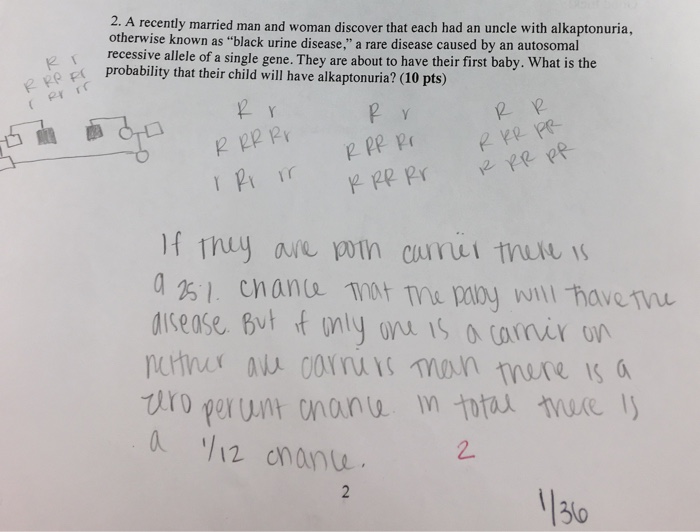 2. A recently married man and woman discover that each had an uncle with alkaptonuria,
otherwise known as “black urine disease,” a rare disease caused by an autosomal
recessive allele of a single gene. They are about to have their first baby. What is the
probability that their child will have alkaptonuria? (10 pts)
R r
R RR Rr
r Rr rr
R r
R RR Rr
r Rr rr
R r
R RR Rr
R RR Rr
R R
R RR RR
R RR RR
If they are both carrier there is
a 25%. chance that the baby will have the
disease. But if only one is a carrir or
neither are carriers than there is a
zero percent chance. In total there is
a 1/12 chance.
2
2
1/36